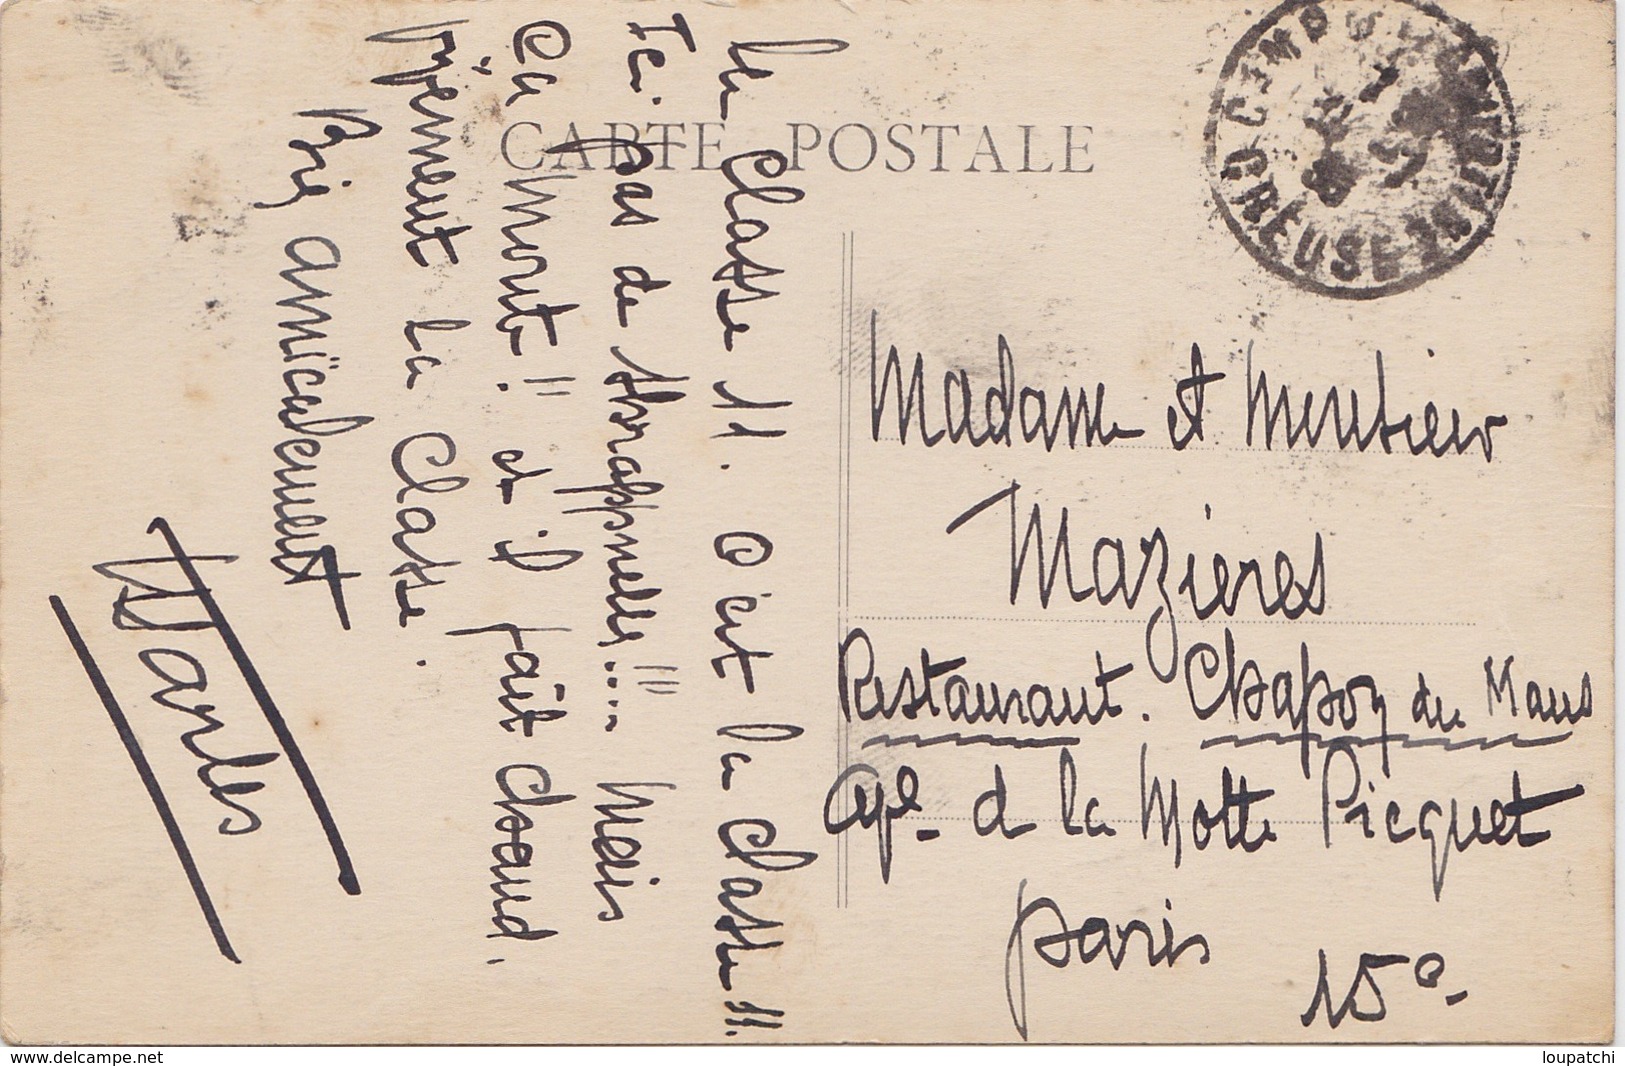 CARTE POSTALE
la Classe 11. C'est la Classe!!
Ici pas de Shrappnells!!... Mais
Ça Mout!! et il fait Chaud.
Vivement La Classe.
Bien amicalement
Madame et Monsieur
Mazieres
Restaurant. Chapon du Mans
de la Motte Picquet
Paris
15e.
CREUSE
www.delcampe.net
loupatchi